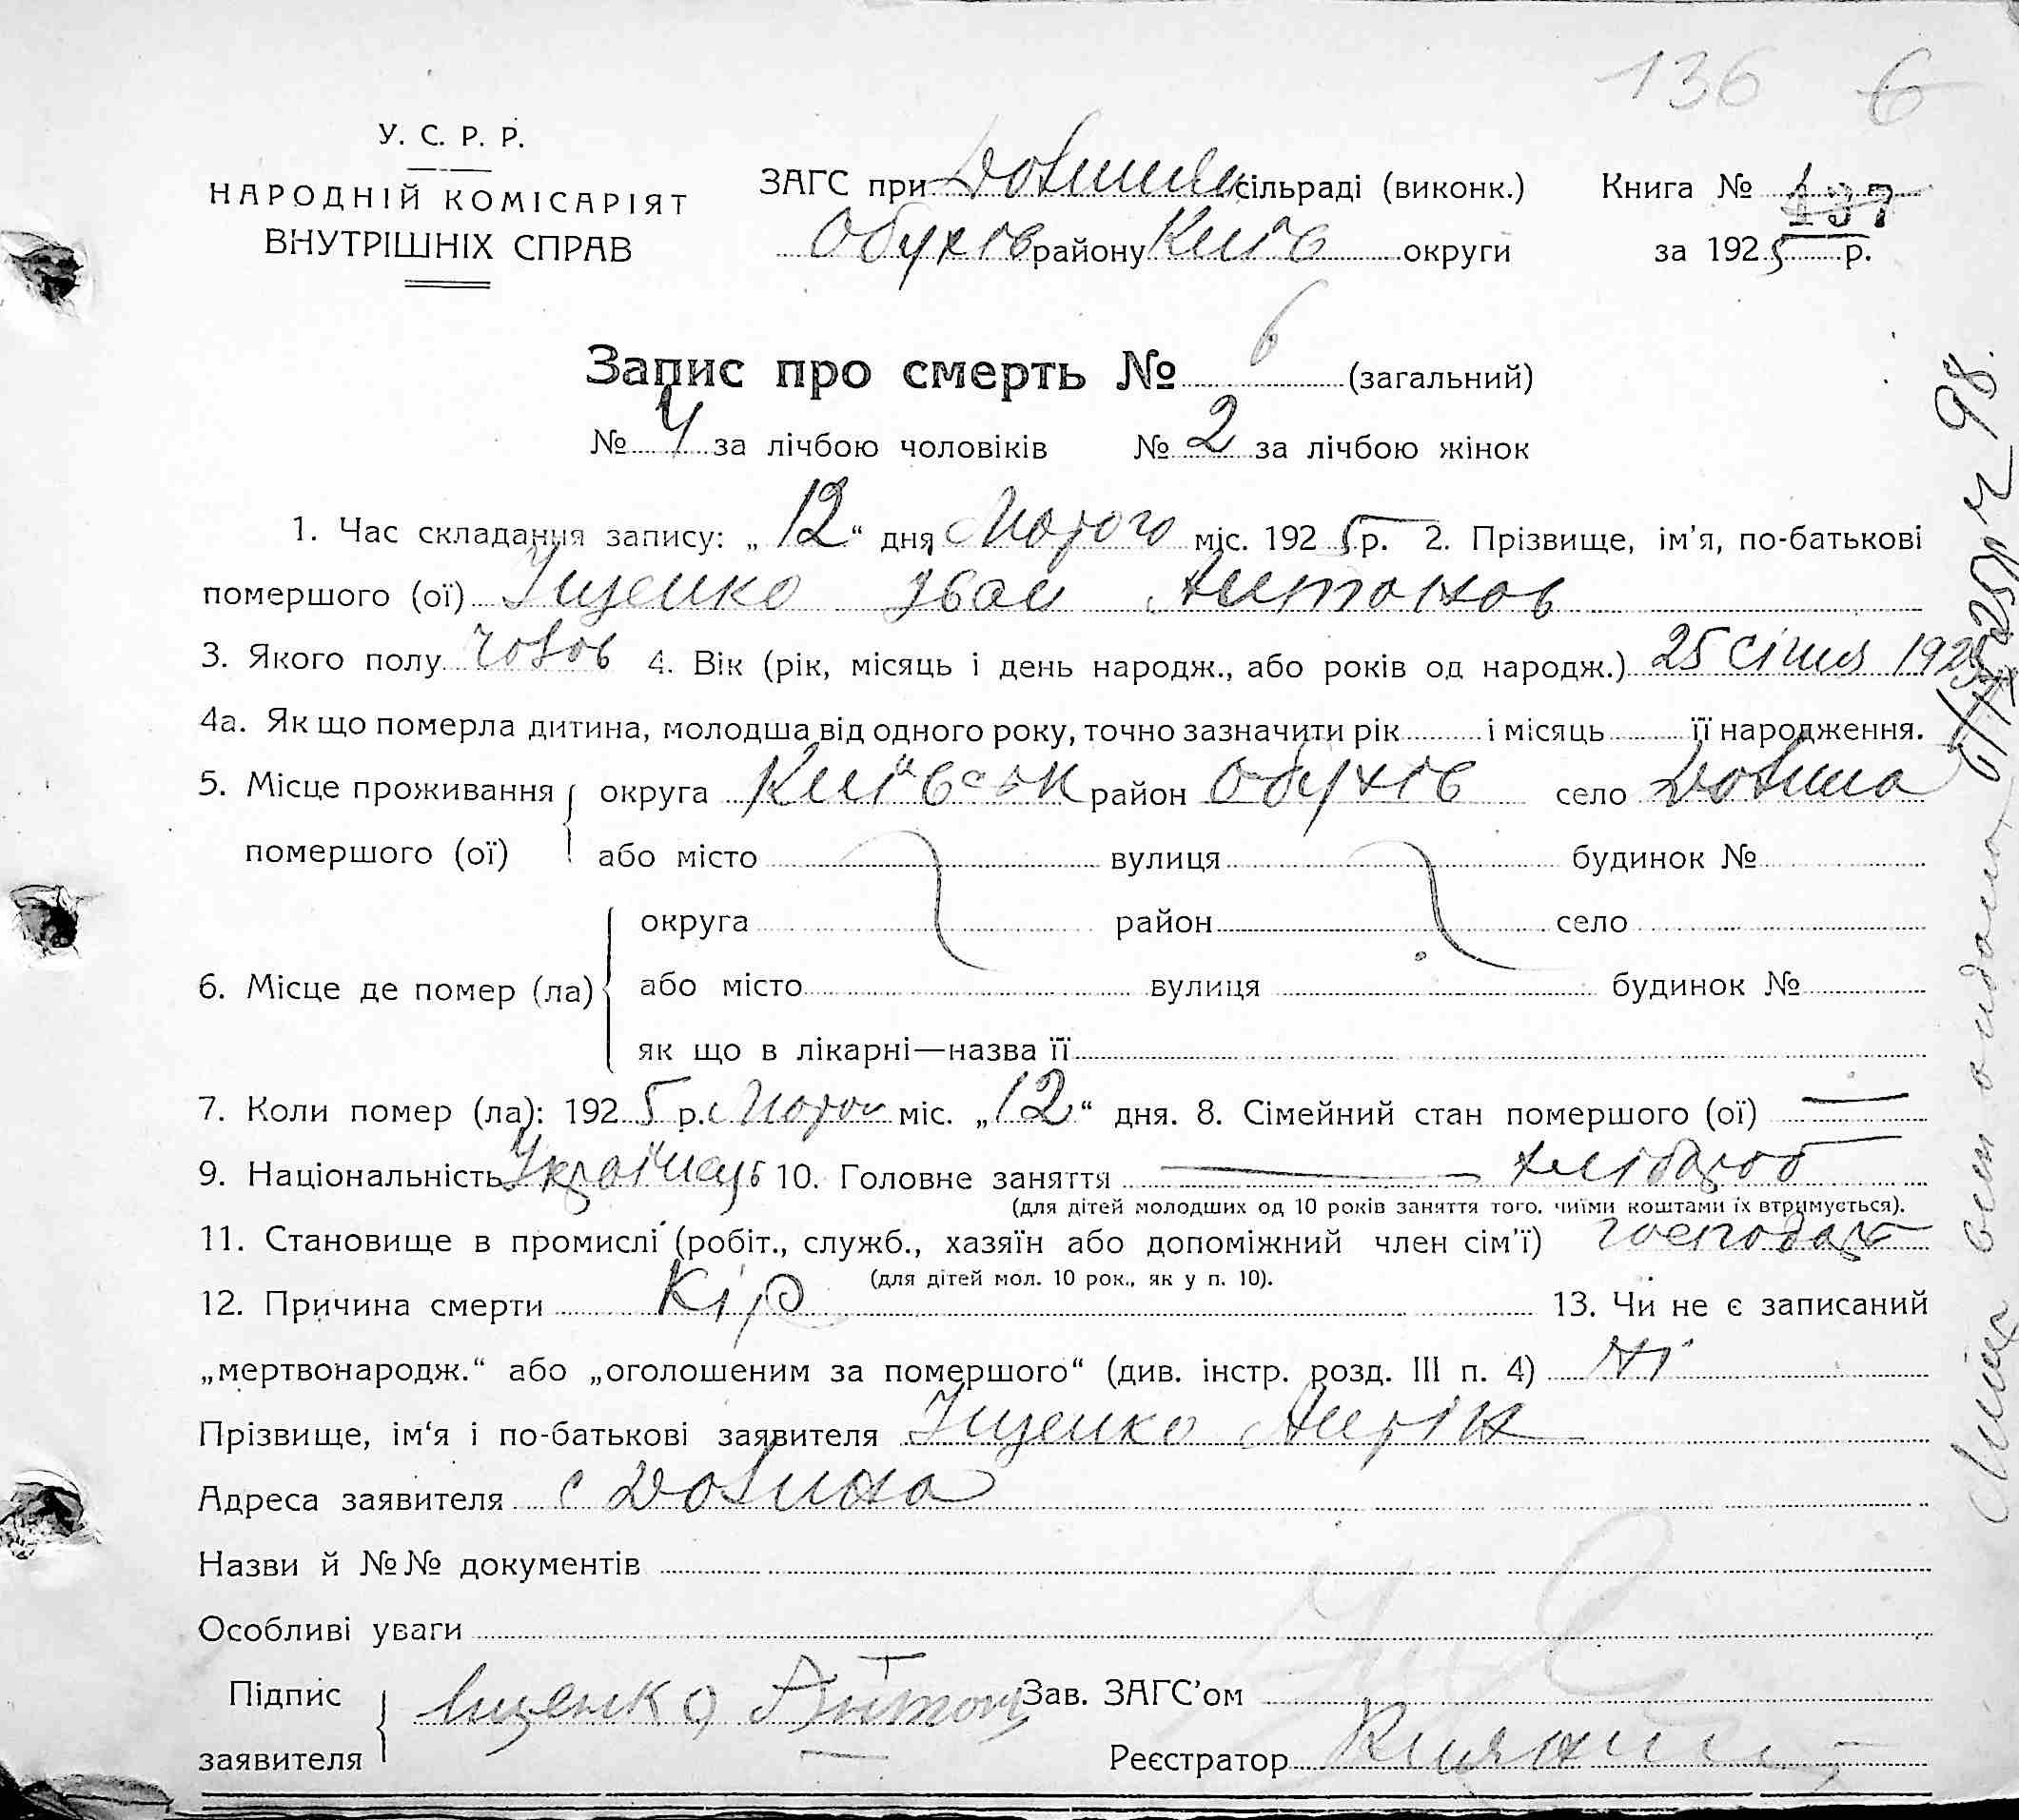 136 6
У. С. Р. Р.
НАРОДНІЙ КОМІСАРІЯТ
ВНУТРІШНІХ СПРАВ
ЗАГС при Долинян сільраді (виконк.)
Обухів району Київ округи
Книга № 137
за 1925 р.
Запис про смерть № 6 (загальний)
№ 4 за лічбою чоловіків № 2 за лічбою жінок
1. Час складання запису: „12“ дня Лютого міс. 1925 р. 2. Прізвище, ім'я, по-батькові
помершого (ої) Іщенко Іван Антонов
3. Якого полу чолов 4. Вік (рік, місяць і день народж., або років од народж.) 25 січня 1925
4а. Як що померла дитина, молодша від одного року, точно зазначити рік і місяць її народження.
5. Місце проживання помершого (ої) округа Київськ район Обухів село Долина
або місто вулиця будинок №
6. Місце де помер (ла) округа район село
або місто вулиця будинок №
як що в лікарні—назва її
7. Коли помер (ла): 1925 р. Лютого міс. „12“ дня. 8. Сімейний стан помершого (ої) —
9. Національність Українець 10. Головне заняття — хлібороб
(для дітей молодших од 10 років заняття того, чиїми коштами їх втримується).
11. Становище в промислі (робіт., служб., хазяїн або допоміжний член сім'ї) господарь
(для дітей мол. 10 рок., як у п. 10).
12. Причина смерти Кір 13. Чи не є записаний
„мертвонародж.“ або „оголошеним за помершого“ (див. інстр. розд. III п. 4) Ні
Прізвище, ім‘я і по-батькові заявителя Іщенко
Адреса заявителя с Долина
Назви й №№ документів
Особливі уваги
Підпис заявителя Іщенко Антон
Зав. ЗАГС'ом
Реєстратор